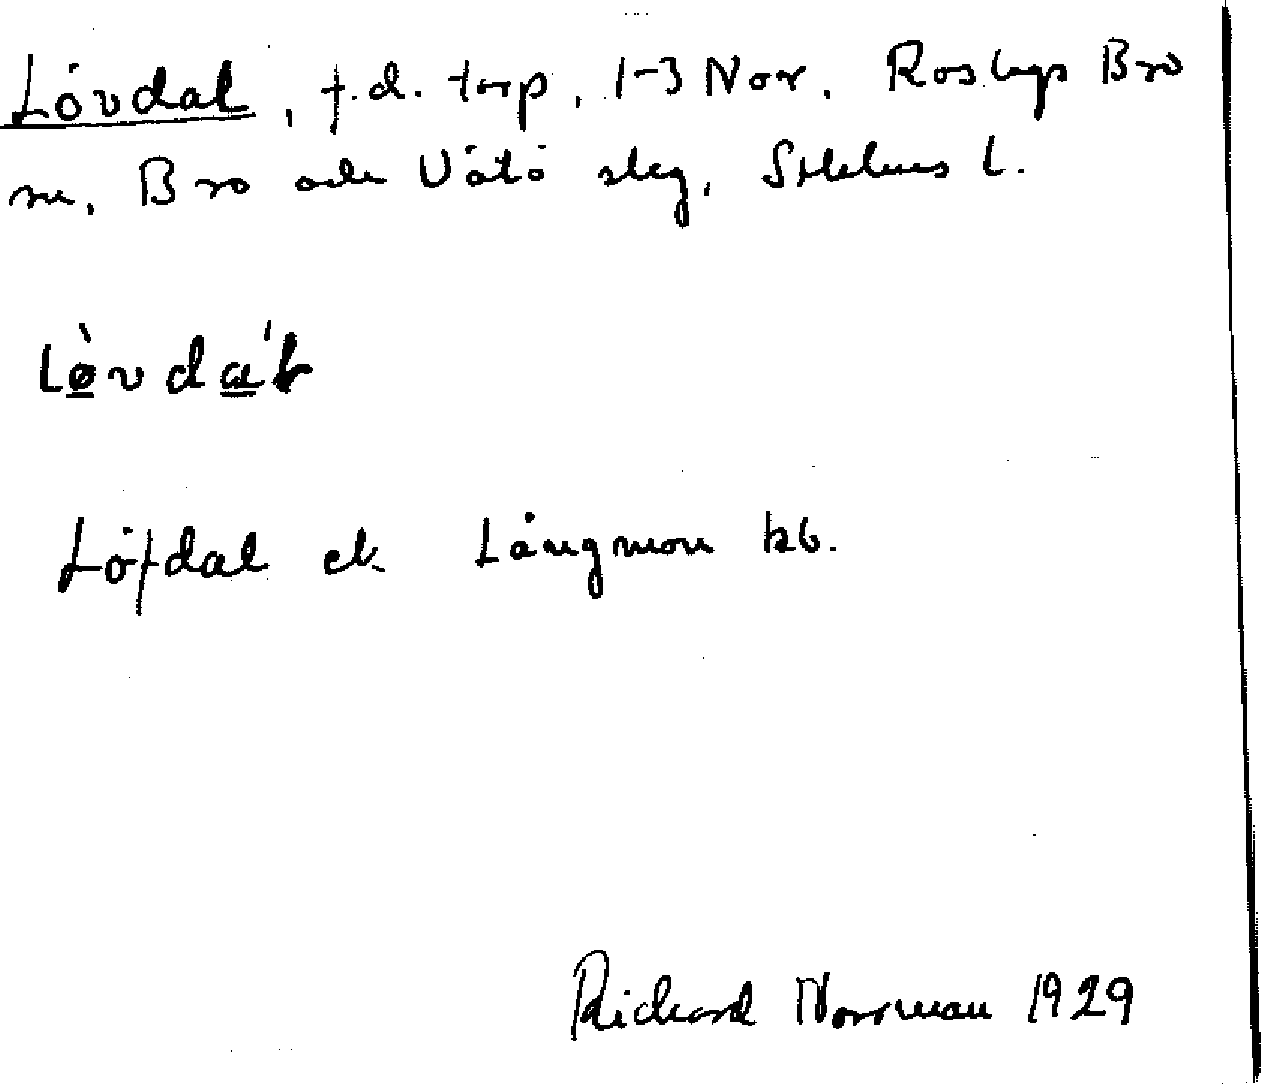 Lövdal, f.d. torp, 1-3 Nor, Rosbygs Bro
sn, Bro och Vätö skg, Sthlms l.
Lø̀vda'l
Löfdal el. Långmon kb.
Richard Norrman 1929